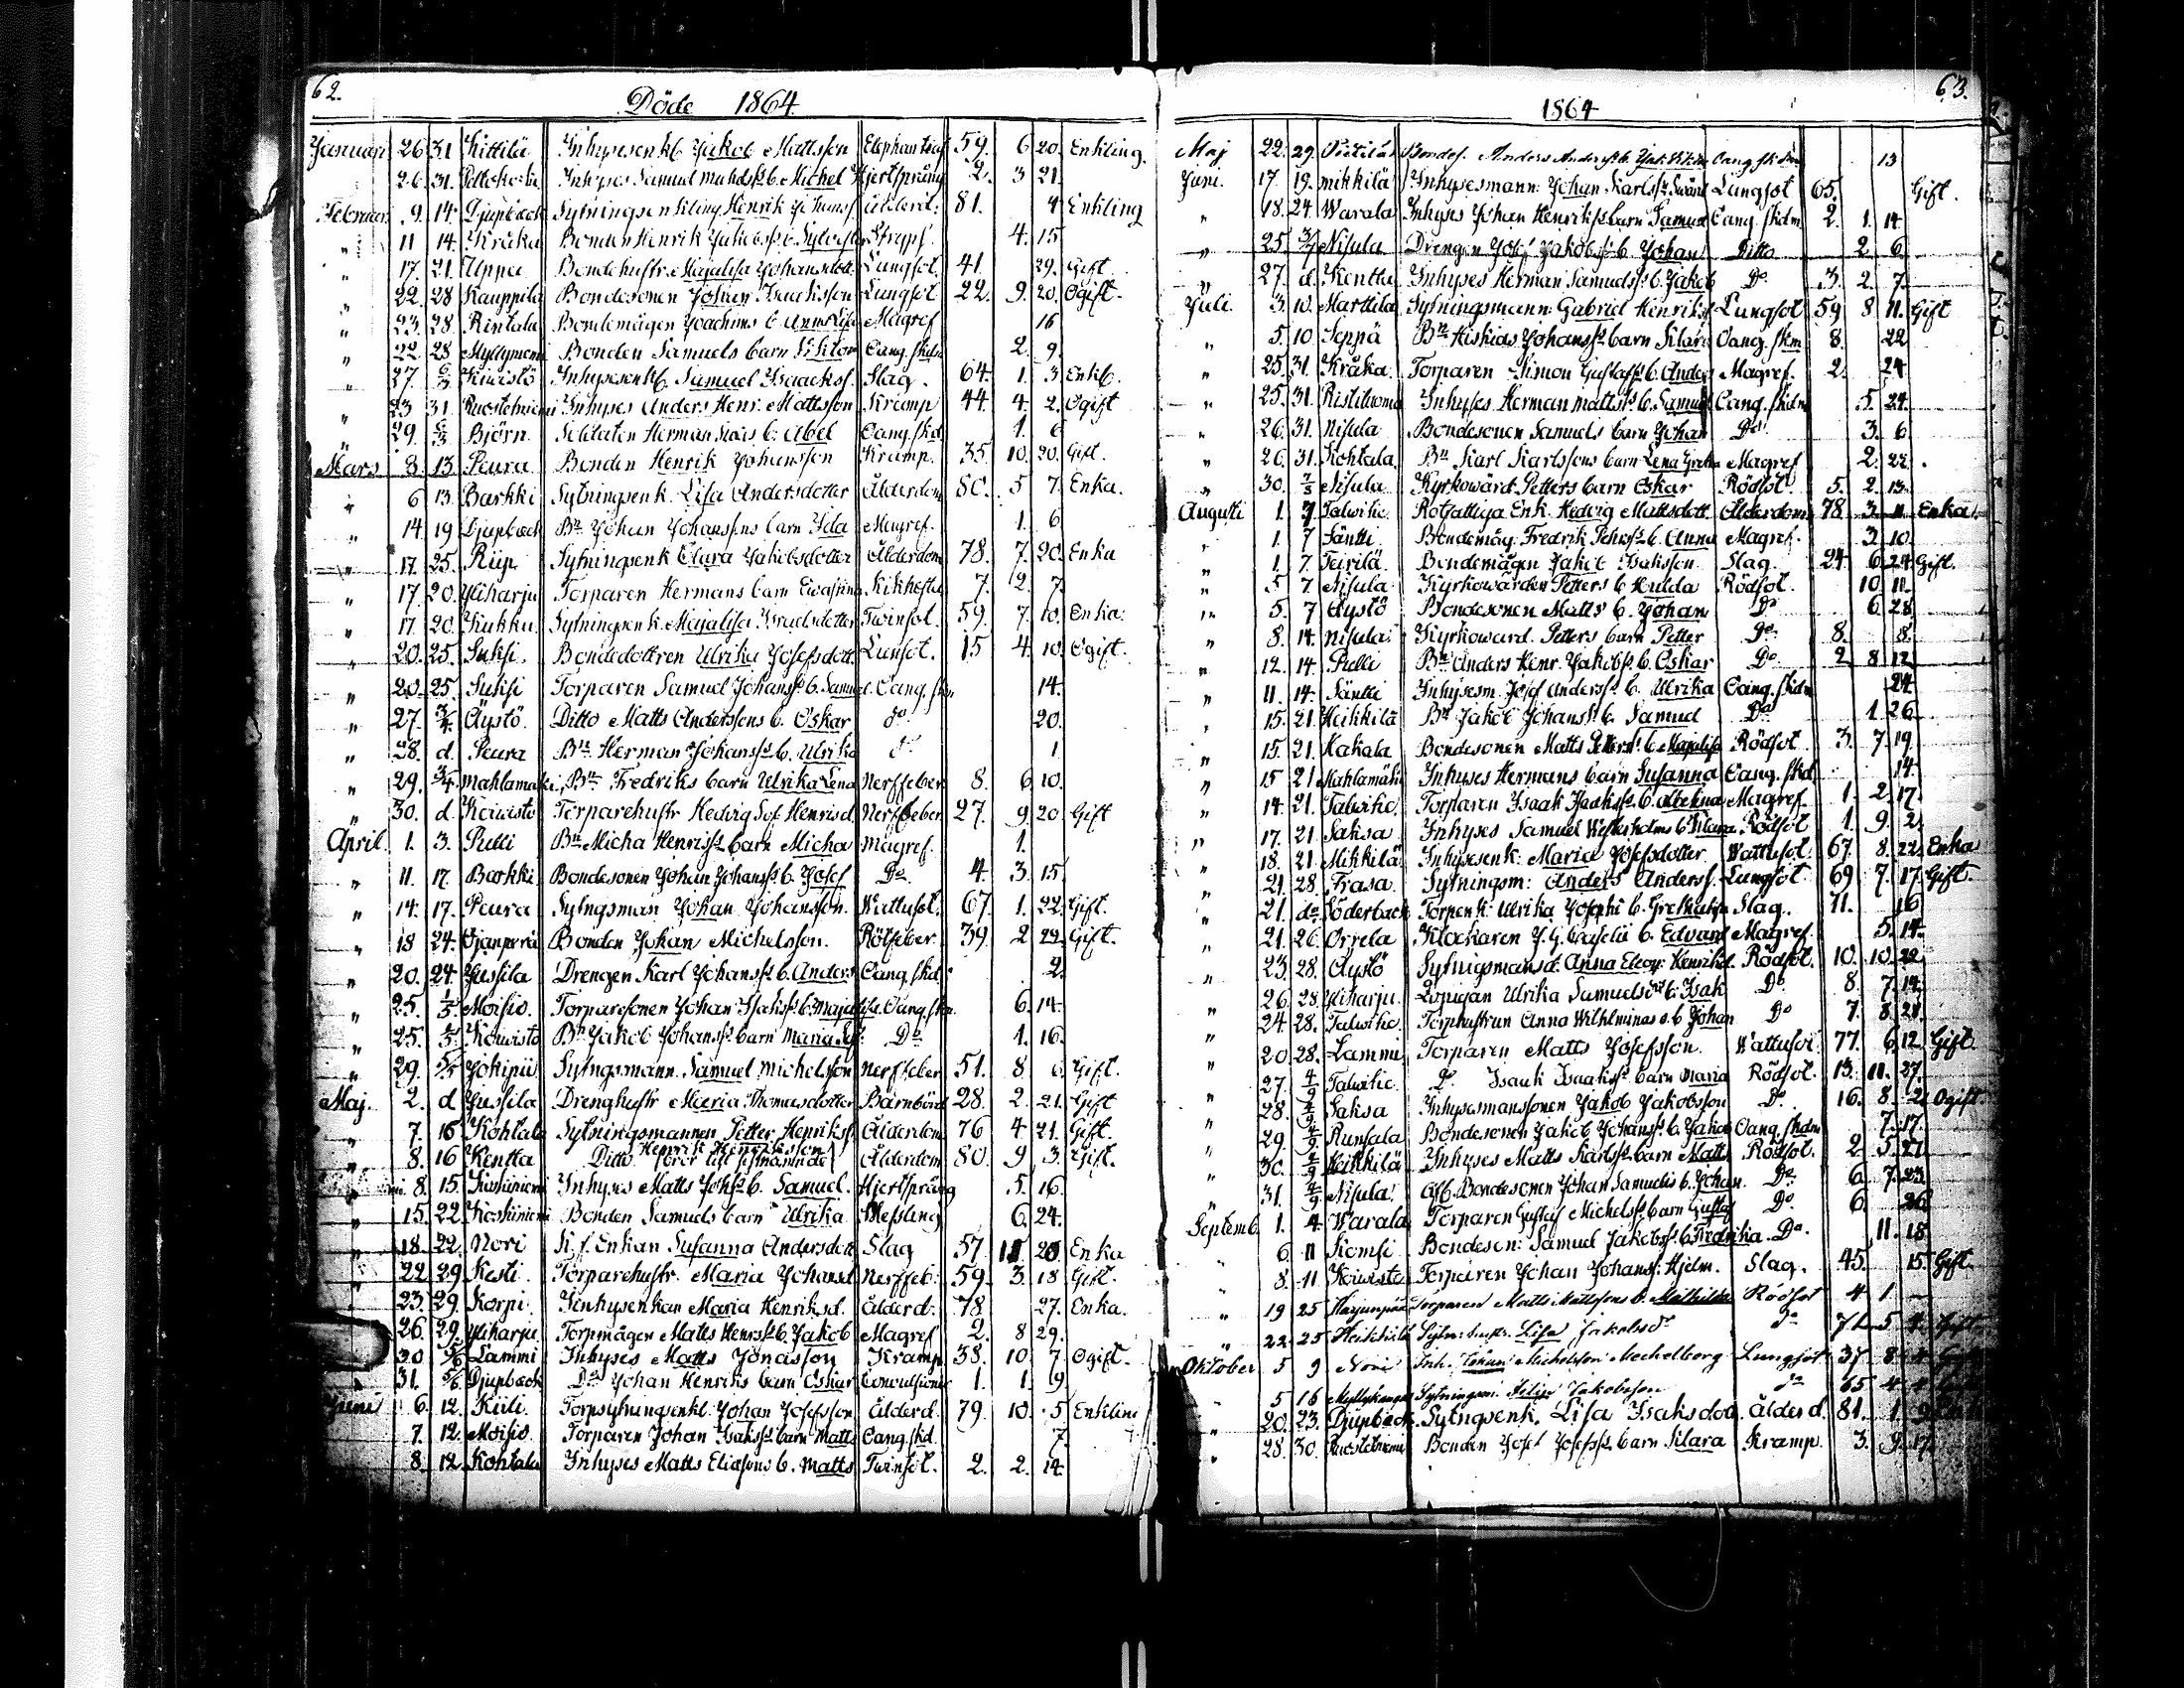 62.
Döde 1864.
Januari 26. 31. Kittilä Inhysesenkl. Jakob Mattsson 59. 6. 20. Enkling.
26. 31. Inhyses Samuel b. Michel Hjertsprång 2. 3 21.
Februar. 9. 14. Djupback Sytningsenkling Henrik Johanss. ålderd. 81. 4 Enkling
" 11 14. Kråka Bonden Henrik Jakobss. b. Sylvester Strypf. 4. 15
" 17. 21. Uppa Bondehustr. Majalisa Johansdott. Lungsot. 41. 29. Gift
" 22. 28 Kauppila Bondesonen Johan Isaaksson Lungsot 22. 9. 20. Ogift.
" 23. 28. Rintala Bondemågen Joachims b. Annalisa Magref 16
" 22. 28 Myllyniemi Bonden Samuels barn Viktor Oäng. skdm 2. 9.
" 27. 6/3 Koivistö Inhysesenkl. Samuel Isaackss. Slag. 64. 1. 3 Enkl.
" 23 31. Inhyses Anders Henr. Mattsson Kramp 44. 4. 2. Ogift
" 29. 6/3 Björn. Soldaten Herman b. Abel Oäng. skd 1. 6
Mars 8. 13. Peura Bonden Henrik Johansson Kramp. 35. 10. 20. Gift.
" 6 13. Barkki Sytningsenk. Lisa Andersdotter Ålderdom 80. 5 7. Enka.
" 14 19 Djupback Bn. Johan Johanssons barn Ida Magref. 1. 6
" 17. 25. Riip Sytningsenk Clara Jakobsdotter Ålderdom 78. 7. 20. Enka
" 17. 20. Yliharju Torparen Hermans barn Kikhosta 7. 2. 7.
" 17. 20. Kukku. Sytningsenk. Majalisa Israelsdotter Twinsot. 59. 7. 10. Enka.
" 20. 25. Suksi. Bondedottren Ulrika Josefsdott. Lunsot. 15 4. 10. Ogift.
" 20. 25. Suksi Torparen Samuel Johanss. b. Samuel. Oäng. skdm 14.
" 27. 3/4. Äystö. Ditto Matts Anderssons b. Oskar do 20.
" 28. d. Peura Bn. Herman Johanss. b. Ulrika do 1
" 29. 3/4. Mahlamäki, Bn. Fredriks barn Ulrika Lena Nerffeber 8. 6 10.
" 30. d. Koivisto Torparehustr Hedvig Sof. Henrisd. Nerffeber 27. 9 20. Gift
April. 1. 3. Pulli Bn. Micha Henrikss. barn Micha Magref. 1.
" 11. 17. Barkki Bondesonen Johan Johanss. b. Josef Do 4. 3. 15.
" 14. 17. Peura Sytngsman Johan Johansson. Wattusot. 67. 1. 22. Gift.
" 18 24. Bonden Johan Michelsson. Rötfeber. 39. 2 22. Gift.
" 20. 24. Jussila Drengen Karl Johanss. b. Anders Oäng. skd. 2.
" 25. 1/5. Moisio. Torparesonen Johan Isakss. b. Majalisa. Oäng. skn. 6. 14.
" 25. 1/5. Koivisto Bn. Jakob Johanss. barn Maria Do 1. 16.
" 29. Jokipii Sytngsmann. Samuel Michelsson Nerffeber 51. 8 6. Gift.
Maj. 2. d Jussila Drenghustr Maria Thomasdotter Barnbörd 28. 2. 21. Gift
" 7. 16. Kohtala Sytningsmannen Petter Henrikss. Ålderdom 76 4. 21. Gift.
" 8. 16 Kentta Ditto Henrik Henriksson Ålderdom 80. 9 3. Gift.
8. 15. Inhyses Matts Johss. b. Samuel. Hjertsprång 5. 16.
" 15. 22. Koskiniemi Bonden Samuels barn Ulrika Messling 6. 24.
" 18. 22. Nori Enkan Susanna Andersdott Slag 57. 20. Enka
" 22. 29. Kesti. Torparehustr. Maria Johansd Nerffeb. 59. 3. 18. Gift.
23. 29. Korpi. Inhysenkan Maria Henriksd. ålderd. 78 27. Enka.
" 26. 29. Yliharju. Torpmågen Matts Henrss. b. Jakob Magref 2. 8 29.
" 30 5/6 Lammi Inhyses Matts Jonasson Kramp 38. 10 7. Ogift.
" 31. 5/6 Djupback Do Johan Henriks barn Oskar Convulsioner 1. 1. 9
Juni 6. 12. Kiili Torpsytningsenkl. Johan Josefsson ålderd. 79. 10. 5 Enkling
7. 12. Moisio. Torparen Johan Isakss. barn Matts Oäng. skd. 7.
8. 12. Kohtala Inhyses Matts Eliasons b. Matts Twinsot. 2. 2. 14.
63.
1864
Maj 22. 29. Bondes. Anders Anderss. b. Oäng. skdm 13
Juni. 17. 19. Mikkilä Inhysesmann. Johan Karlss. Lungsot 65. Gift.
" 18. 24. Warala Inhyses Johan Henrikss. barn Samuel Oäng. skdm 2. 1. 14
" 25. 3/7 Nisula Drengen Jakobss. b. Johan Ditto 2. 6.
" 27. d. Kentta Inhyses Herman Samuelss. b. Jakob Do 3. 2. 7.
Juli. 3. 10. Marttila Sytningsmann. Gabriel Henrikss Lungsot 59 8 11. Gift
" 5. 10 Seppä Bn. Hiskias Johanss. barn Klara Oäng. skm 8. 22
" 25. 31. Kråka. Torparen Simon Gustafss. b. Anders Magref. 2. 24
" 25. 31. Inhyses Herman Mattss. b. Samuel Oäng. skdm 5. 24.
" 26. 31. Nisula Bondesonen Samuels barn Johan Do 3. 6
" 26. 31. Kohtala. Bn. Karl Karlssons barn Lena Greta Magref 2. 22.
" 30. Nisula Kyrkowärd. Petters barn Oskar Rödsot. 5. 2. 13.
Augusti 1. 7 Talwitie. Rotfattiga Enk. Hedvig Mattsdott Ålderdom 78. 3. 11. Enka.
" 1. 7 Säntti Bondemåg. Fredrik b. Anna Magref. 3. 10
" 1. 7. Teirilä Bondemågen Jakob Isaksson. Slag. 24. 6. 24 Gift.
" 5 7. Nisula Kyrkowärden Petters b. Hulda Rödsot. 10 11.
" 5. 7 Äystö Bondesonen Matts b. Johan Do 6. 28
" 8. 14. Nisula. Kyrkoward. Petters barn Petter Do 8. 8.
" 12. 14 Pulli Bn. Anders Henr. Jakobss. b. Oskar Do 2 8 12
" 11. 14. Säntti Inhysesm. Josef Anderss. b. Ulrika Oäng. skdm 24.
" 15. 21. Heikkilä Bn. Jakob Johanss. b. Samuel Do 1. 26
" 15. 21. Kakala Bondesonen Matts Petterss. b. Majalisa Rödsot 3. 7. 19.
" 15 21 Mahlamäki Inhyses Hermans barn Susanna Oäng. skd. 14.
" 14. 21. Talwitie. Torparen Isaak Isaakss. b. Magref. 1. 2. 17.
" 17. 21 Saksa Inhyses Samuel Westerholms b. Klara Rödsot 1. 9. 2.
" 18. 21 Mikkilä Inhysesenk. Maria Josefsdotter Wattusot. 67. 8. 22. Enka
" 21. 28. Frasa. Sytningsm: Anders Anderss. Lungsot 69 7. 17 Gift.
" 21. do Söderback Ulrika Slag. 11. 16
" 21. 26. Orrela Klockaren J. G. b. Edvard Magref. 5. 14.
" 23. 28. Äystö Sytnigsmansd. Anna Rödsot. 10. 10. 22
" 26. 28. Yliharju. Ulrika b. Isak Do 8. 7 14.
" 24 28. Talwitie. Torphustrun Anna Wilhelminas b. Johan Do 7. 8. 21.
" 20. 28. Lammi Torparen Matts Josefsson. Wattusot 77. 6. 12. Gift.
" 27. 4/9 Talwitie. D. Isaak Isaakss. barn Maria Rödsot. 13. 11. 27.
" 28. 4/9 Saksa Inhysesmanssonen Jakob Jakobsson Do 16. 8 2. Ogift
" 29. 4/9 Runsala Bondesonen Jakob Johanss. b. Jakob Oäng. skdm 7. 17.
" 30. 4/9 Heikkilä Inhyses Matts Karlss. barn Matts Rödsot. 2 5. 27
" 31. 4/9 Nisula. Bondesonen Johan Samuels b. Johan. Do 6. 7. 23.
Septemb. 1. 4. Warala Torparen Gustaf Michelss. barn Gustaf Do 6. 26
6 11 Komsi Bondeson: Samuel Jakobss. b. Fredrika. Do 11. 18
8. 11. Koivisto Torparen Johan Johanss. Hjelm. Slag. 45. 15. Gift.
" 19 25 Harjunpää Torparen Matts Mattssons b. Mathilda Rödsot 4 1.
" 22. 25 Lisa Jakobsdr do 71 5
Oktober 5 9 Nori Inh. Johan Michelsson Mechelborg Lungsot 37 8
5 16 Sytningsm. Jakobsson do 65 4
20. 23. Djupback Sytngsenk. Lisa Isaksdott. ålderd. 81. 1. 9
28. 30. Bonden Josef Josefss. barn Klara Kramp. 3. 9. 17.